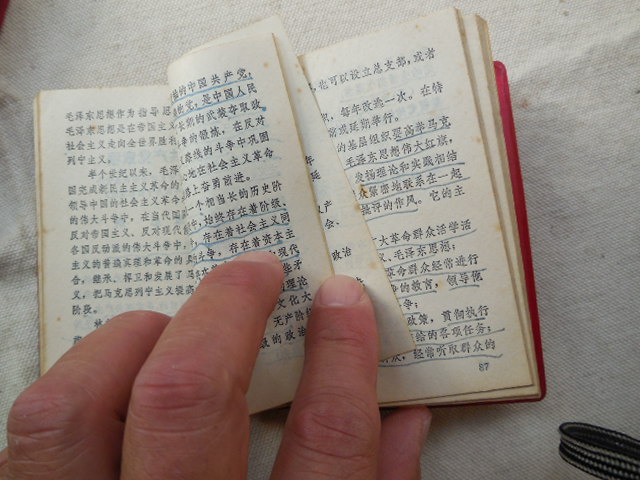 毛泽东思想作为指导思
毛泽东思想是在帝国主义
社会主义走向全世界胜利
列宁主义。
半个世纪以来，毛泽
国完成新民主主义革命的
领导中国的社会主义革命
的伟大斗争中，在当代国
反对帝国主义、反对现代
各国反动派的伟大斗争中，
主义的普遍真理和革命的
合，继承、捍卫和发展了
义，把马克思列宁主义提高
阶段。
的中国共产党，
党，是中国人民
长期的武装夺取政
争的锻炼，在反对
路线的斗争中巩固
地在社会主义革命
路上奋勇前进。
个相当长的历史阶
始终存在着阶级、
存在着社会主义同
斗争，存在着资本主
现代
矛
理论
文化大
无产阶
的政治
政治
，也可以设立总支部，或者
，每年改选一次。在特
前或延期举行。
的基层组织要高举马克
毛泽东思想伟大红旗，
发扬理论和实践相结
众紧密地联系在一起
批评的作风。它的主
广大革命群众活学活
义、毛泽东思想；
革命群众经常进行
争的教育，领导他
争；
政策，贯彻执行
给的各项任务；
众，经常听取群众的
87